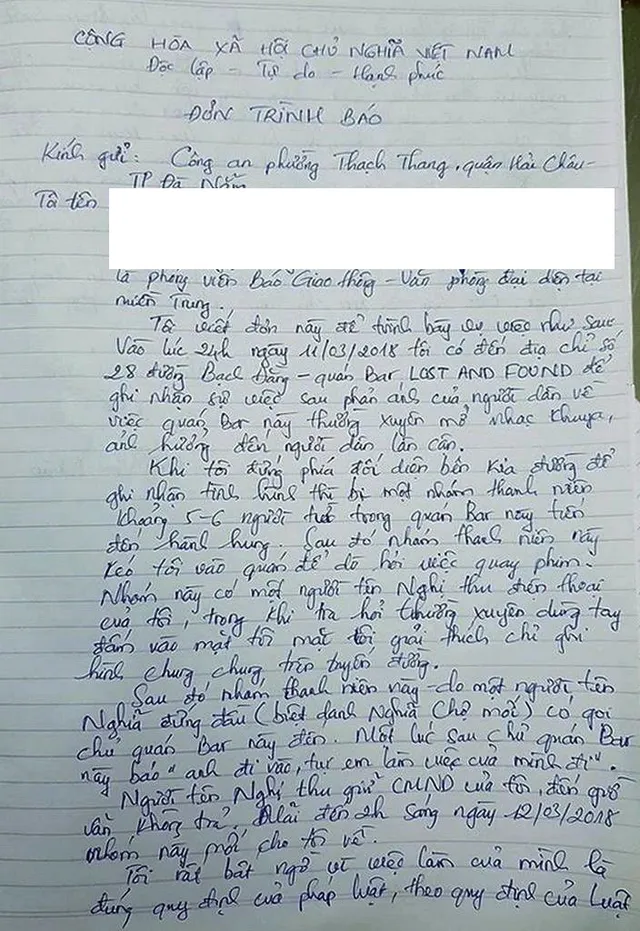 CỘNG HÒA XÃ HỘI CHỦ NGHĨA VIỆT NAM
Độc lập - Tự do - Hạnh phúc
ĐƠN TRÌNH BÁO
Kính gửi: Công an phường Thạch Thang, quận Hải Châu -
TP Đà Nẵng
Tôi tên
là phóng viên Báo Giao thông - Văn phòng đại diện tại
miền Trung.
Tôi viết đơn này để trình bày vụ việc như sau:
Vào lúc 24h ngày 11/03/2018 tôi có đến địa chỉ số
28 đường Bạch Đằng - quán Bar LOST AND FOUND để
ghi nhận sự việc sau phản ánh của người dân về
việc quán Bar này thường xuyên mở nhạc khuya,
ảnh hưởng đến người dân lân cận.
Khi tôi đứng phía đối diện bên kia đường để
ghi nhận tình hình thì bị một nhóm thanh niên
khoảng 5-6 người từ trong quán Bar này tiến
đến hành hung. Sau đó nhóm thanh niên này
kéo tôi vào quán để dò hỏi việc quay phim.
Nhóm này có một người tên Nghị thu điện thoại
của tôi, trong khi tra hỏi thường xuyên dùng tay
đấm vào mặt tôi mặc tôi giải thích chỉ ghi
hình chung chung, trên tuyến đường.
Sau đó nhóm thanh niên này - do một người tên
Nghĩa đứng đầu (biệt danh Nghĩa Chợ mới) có gọi
chủ quán Bar này đến. Một lúc sau chủ quán Bar
này bảo "anh đi vào, tụi em làm việc của mình đi".
Người tên Nghị thu giữ CMND của tôi, đến giờ
vẫn không trả lại đến 2h sáng ngày 12/03/2018
nhóm này mới cho tôi về.
Tôi rất bất ngờ vì việc làm của mình là
đúng quy định của pháp luật, theo quy định của Luật